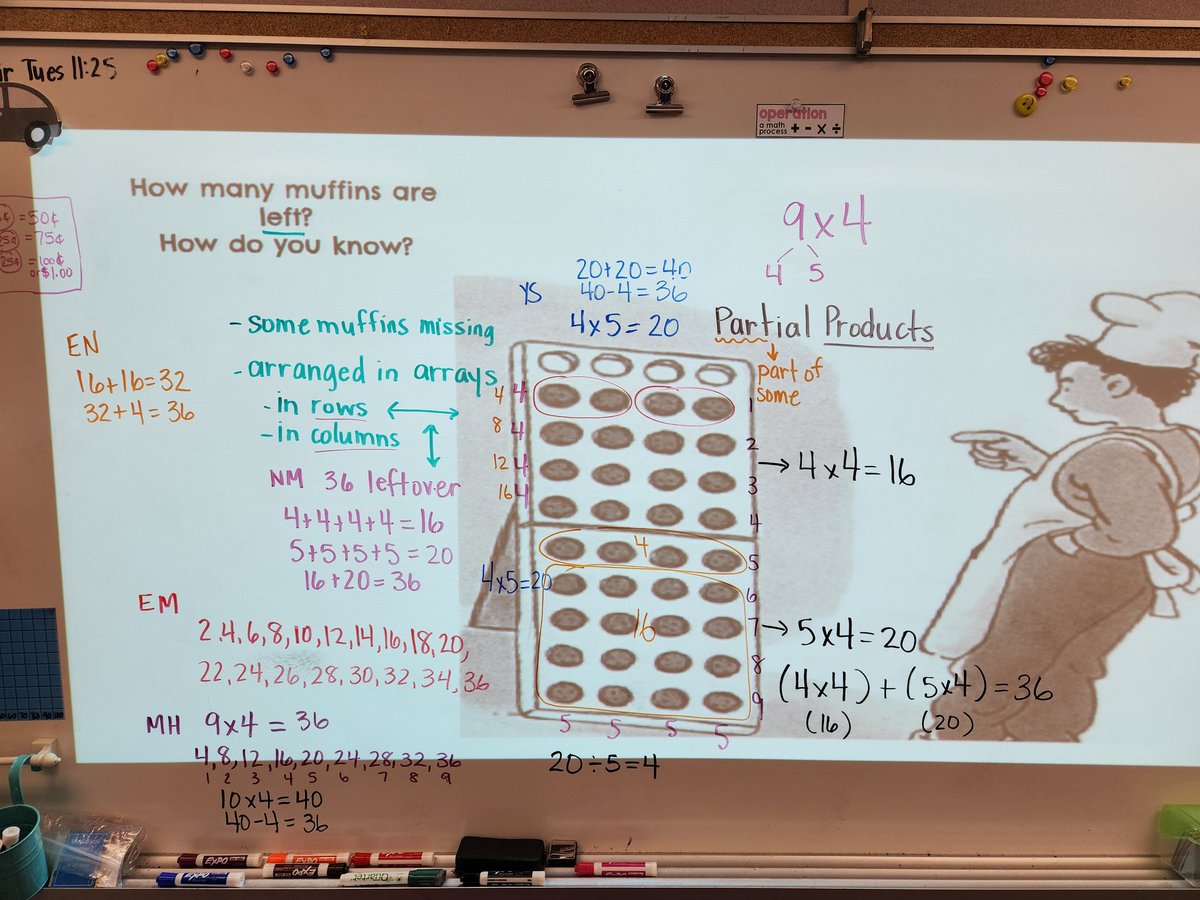 Tues 11:25
operation
a math
process + - x ÷
= 50¢
25¢ = 75¢
25¢ = 100¢
or $1.00
How many muffins are
left?
How do you know?
9x4
4 5
20+20=40
YS 40-4=36
4x5=20
Partial Products
part of
some
EN
16+16=32
32+4=36
- some muffins missing
- arranged in arrays
- in rows
- in columns
NM 36 leftover
4+4+4+4=16
5+5+5+5=20
16+20=36
EM
2,4,6,8,10,12,14,16,18,20,
22,24,26,28,30,32,34,36
MH 9x4=36
4,8,12,16,20,24,28,32,36
1 2 3 4 5 6 7 8 9
10x4=40
40-4=36
4 4 1
8 4 2
12 4 3
16 4 4
4 5
4x5=20 6
16 7
8
9
5 5 5 5
20÷5=4
→ 4x4=16
→ 5x4=20
(4x4)+(5x4)=36
(16) (20)
EXPO
EXPO